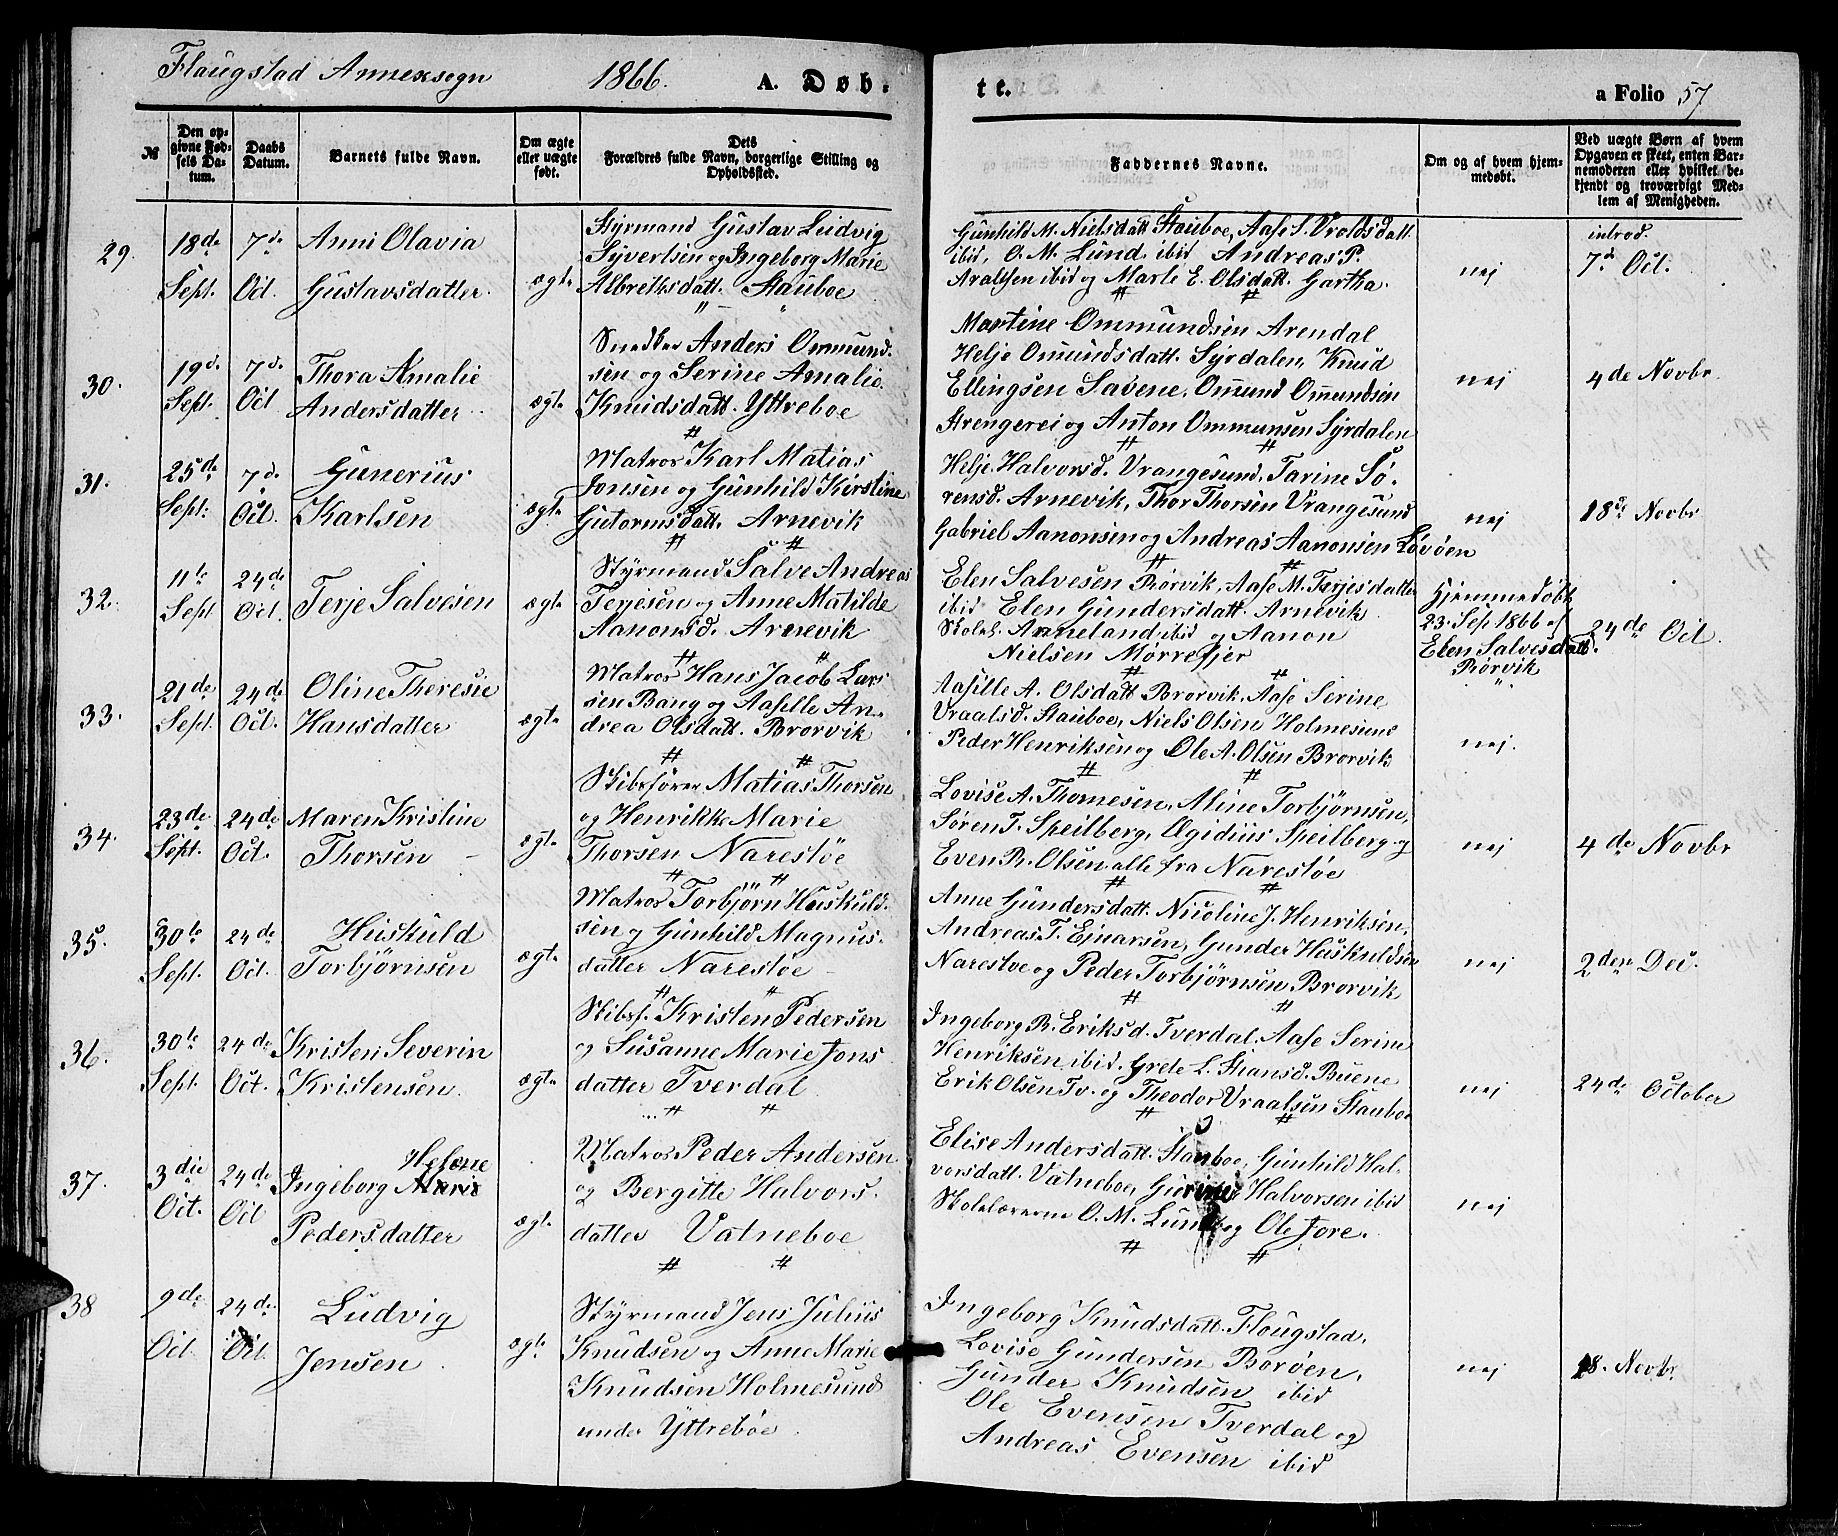 Flaugstad Annexsogn 1866. A. Døb-
te. a Folio 57
№
Den op-
givne Fød-
sels Da-
tum.
Daabs
Datum.
Barnets fulde Navn.
Om ægte
eller uægte
født.
Dets
Forældres fulde Navn, borgerlige Stilling og
Opholdssted.
Faddernes Navne.
Om og af hvem hjem-
medøbt.
Ved uægte Børn af hvem
Opgaven er skeet, enten Bar-
nemoderen eller hvilket be-
kjendt og troværdigt Med-
lem af Menigheden.
29.
18de
Sept.
7de
Oct.
Anni Olavia
Gustavsdatter.
ægte
Styrmand Gustav Ludvig
Syvertsen og Ingeborg Marie
Albretksdatt. Stauboe
Gunhild M. Nielsdatt Stauboe, Aase S. Vroldsdatt.
ibid, O. M. Lund ibid Andreas P.
Aralfsen ibid og Marte E. Olsdatt. Gartha.
nej
introd.
7de Oct.
30.
19de
Sept.
7de
Oct
Thora Amalie
Andersdatter
ægte
Snedker Anders Ommund-
sen og Serine Amalie
Knudsdatt. Yttreboe
Martine Ommundsen Arendal
Helje Omundsdatt. Syrdalen, Knud
Ellingsen Savene, Omund Omundsen
Strengerei og Anton Ommunsen Syrdalen
nej
4de Novbr.
31.
25de
Sept.
7de
Oct.
Gunerius
Karlsen
ægte
Matros Karl Matias
Jonsen og Gunhild Kirstine
Gutormsdatt. Arnevik
Helje Halvorsd. Vrangesund, Tarine Sø-
rensd. Arnevik, Thor Thorsen Vrangesund
Gabriel Aanonsen og Andreas Aanonsen Løvøen
nej
18de Novbr
32.
11te
Sept
24de
Oct.
Terje Salvesen
ægte
Styrmand Salve Andreas
Terjesen og Anne Matilde
Aanonsd. Arnevik
Elen Salvesen Rørvik, Aase M. Terjesdatter
ibid Elen Gundersdatt. Arnevik
Skolel. Arneland ibid og Aanon
Nielsen Mørrefjer
Hjemmedøbt
23. Sep 1866 af
Elen Salvesdatt.
Rørvik
24de Oct.
33.
21de
Sept.
24de
Oct.
Oline Theresie
Hansdatter
ægte
Matros Hans Jacob Lars
sen Bang og Aaselle An-
drea Olsdatt. Brorvik
Aasille A. Olsdatt Brorvik, Aase Serine
Vraalsd. Stauboe, Niels Olsen Holmesund
Peder Henriksen og Ole A. Olsen Brorvik
nej.
34.
23de
Sept.
24de
Oct.
Maren Kristine
Thorsen
ægte
Skibsfører Matias Thorsen
og Henrikke Marie
Thorsen Narestøe
Lovise A. Thomesen, Aline Torbjørnsen,
Søren T. Speilberg, Ægidius Speilberg og
Even R. Olsen alle fra Narestøe
nej
4de Novbr
35.
30te
Sept.
24de
Oct.
Huskuld
Torbjørnsen
ægte
Matros Torbjørn Huskuld-
sen og Gunhild Magnus-
datter Narestøe
Anne Gundersdatt. Nicoline J. Henriksen,
Andreas T. Ejnarsen, Gunder Huskuldsen
Narestoe og Peder Torbjørnsen Brorvik
nej
2den Dec.
36.
30te
Sept.
24de
Oct.
Kristen Severin
Kristensen.
ægte
Skibsf. Kristen Pedersen
og Susanne Marie Jons
datter Tverdal
Ingeborg B. Eriksd. Tverdal, Aase Serine
Henriksen ibid. Grete L. Stiansd. Buene
Erik Olsen Tv. og Theodor Vraalsen Stauboe
nej
24de October
37.
3die
Oct.
24de
Oct
Helene
Ingeborg Marie
Pedersdatter
ægte
Matros Peder Andersen
og Bergitte Halvors-
datter Vatneboe
Elise Andersdatt. Stauboe, Gunhild Hal-
vorsdatt. Vatneboe, Gunner Halvorsen ibid
Skolelærerne O. M. Lund og Ole Jore.
nej
38
9de
Oct.
24de
Oct.
Ludvig
Jensen
ægte
Styrmand Jens Julius
Knudsen og Anne Marie
Knudsen Holmesund
under Yttrebøe
Ingeborg Knudsdatt. Flougstad,
Lovise Gundersen Borøen,
Gunder Knudsen ibid
Ole Evensen Tverdal og
Andreas Evensen ibid
nej
18. Novbr.